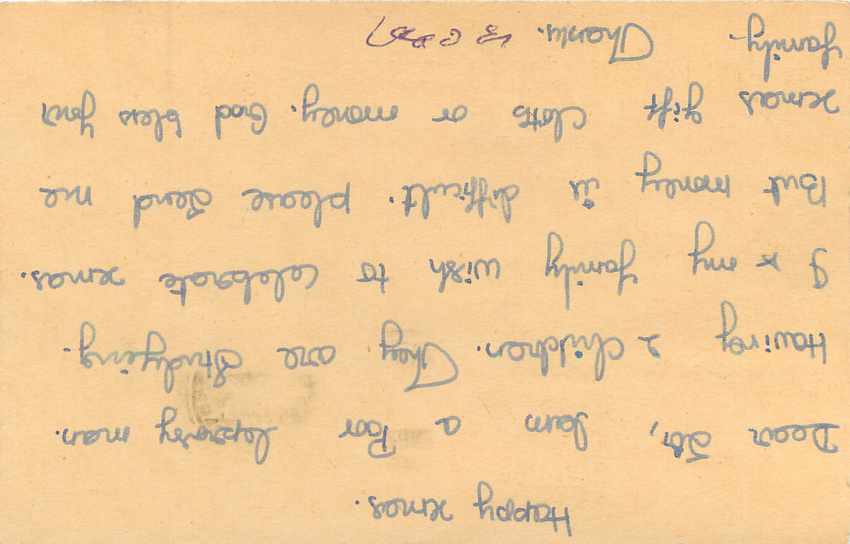 Happy xmas.
Dear Sir, Iam a Poor leprosy man.
Having 2 children. They are Studying.
I & my family wish to celebrate xmas.
But money is difficult. please send me
xmas gift cloth or money. God bless your
family. Thanks.